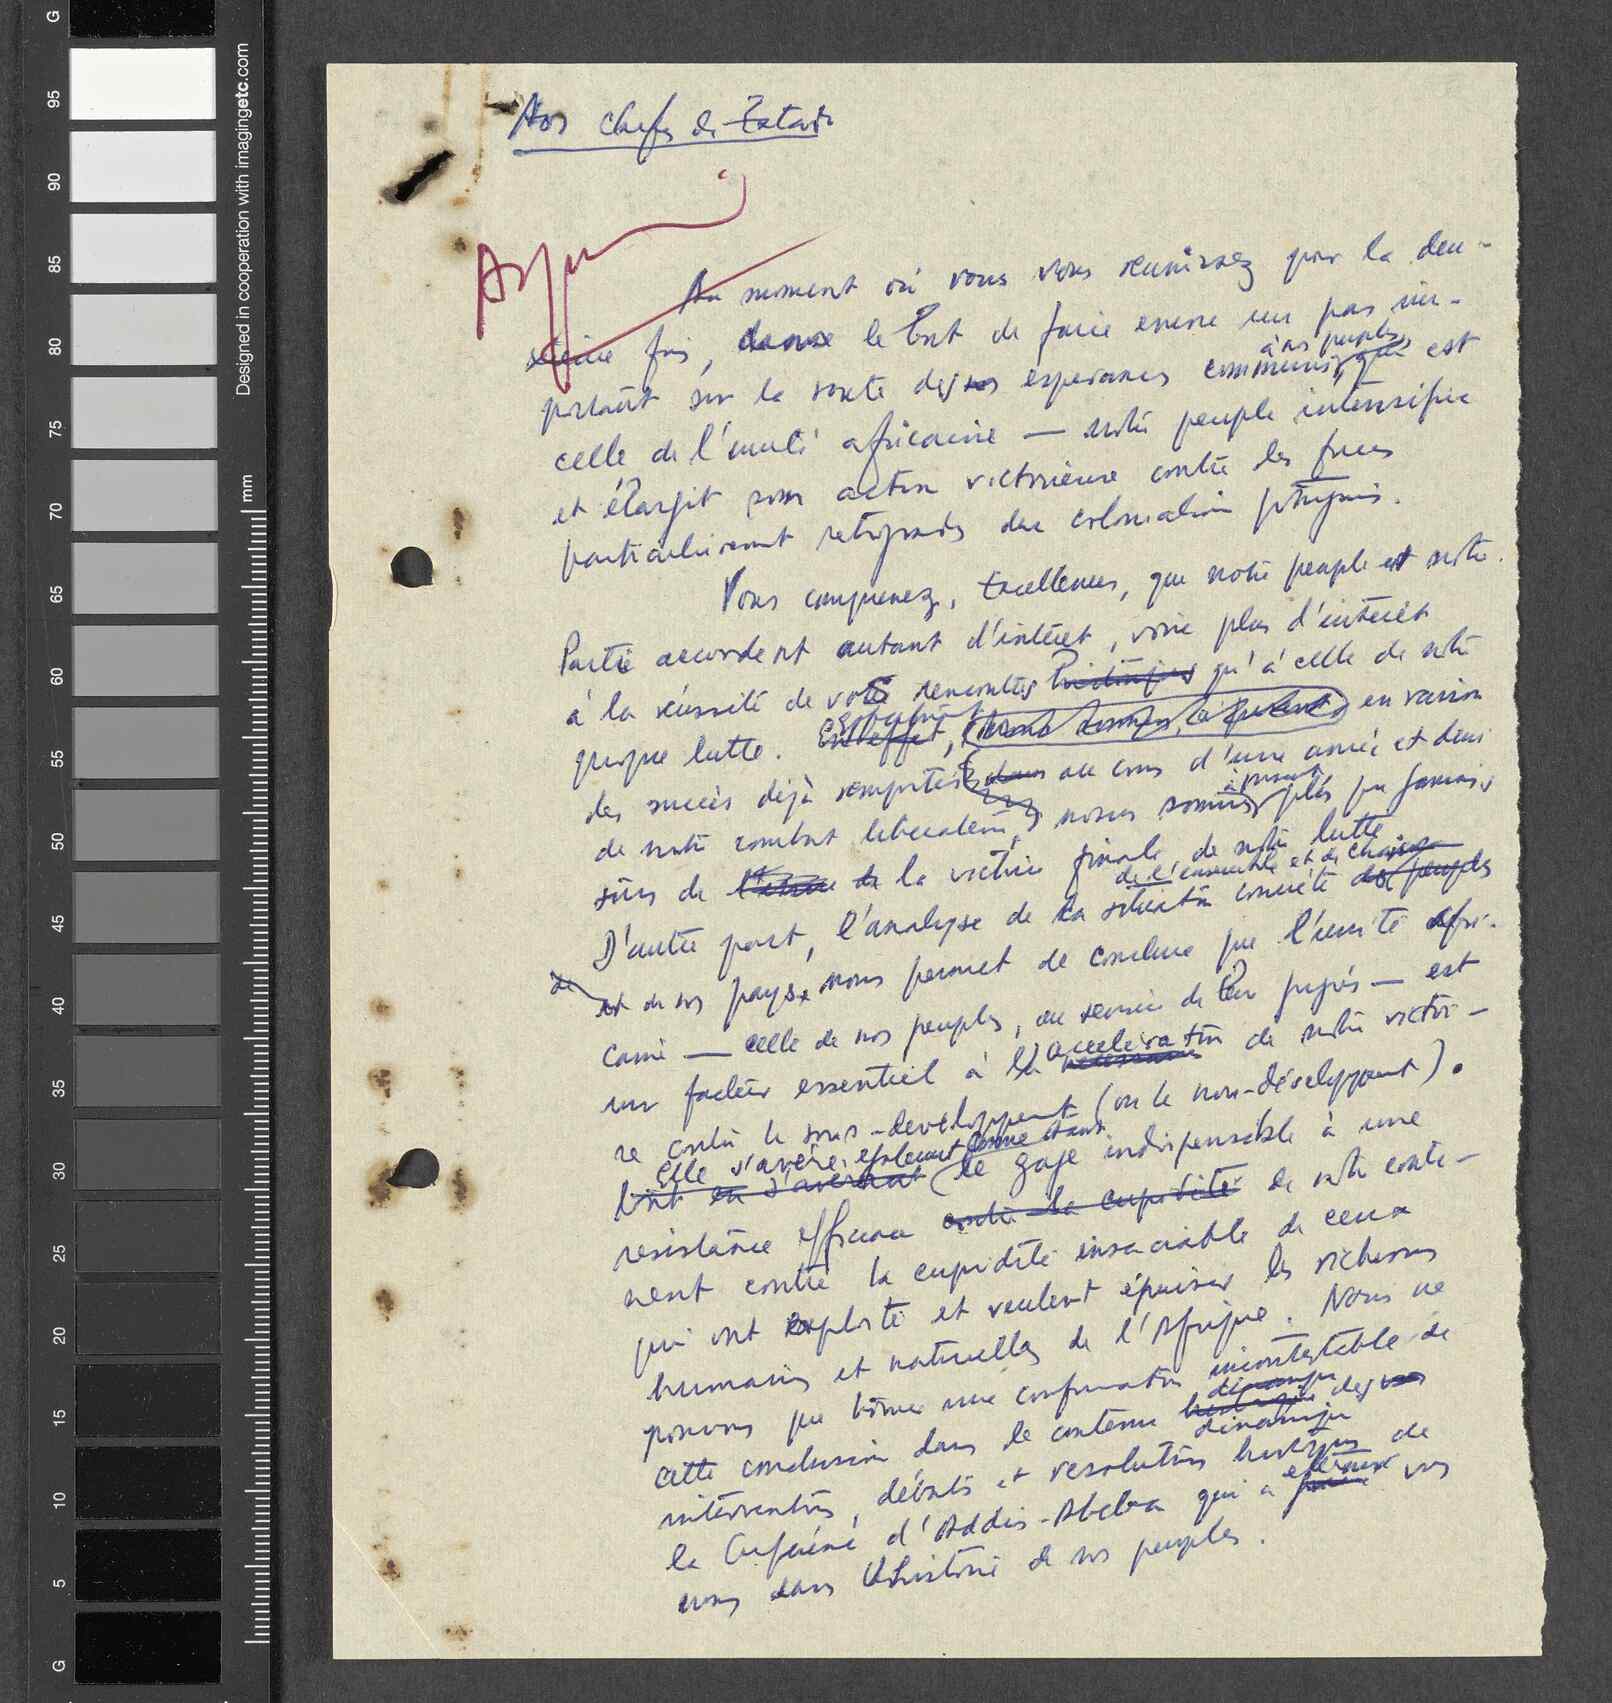 Aos Chefes de Estado
Au moment où vous vous reunissez pour la deu-
xième fois, dans le but de faire encore un pas im-
à nos peuples,
portant sur la route des nos esperances communes, qui est
celle de l'unité africaine — notre peuple intensifie
et élargit son action victorieuse contre les forces
particulièrement retrogrades du colonialisme portugais.
Vous comprenez, Excellences, que notre peuple et notre
Parti accordent autant d'intéret, voire plus d'intéret
à la réussite de votre rencontre historique qu'à celle de notre
propre lutte. En effet, en raison
des succès déjà remportés dans au cours d'une année et demi
à present
de notre combat liberateur, nous sommes plus que jamais
sûrs de la victoire finale de notre lutte
de l'ensemble et de chacun
D'autre part, l'analyse de la situation concrète des peuples
de
et de nos pays, nous permet de conclure que l'unité afri-
caine — celle de nos peuples, au service de leur progrès — est
un facteur essentiel à l'acceleration necessaire de notre victoi-
re contre le sous-developpement (ou le non-développement).
Elle s'avère également comme étant
le gage indispensable à une
resistance efficace contre la cupidité de notre conti-
nent contre la cupidité insaciable de ceux
qui ont exploité et veulent épuiser les richesses
humaines et naturelles de l'Afrique. Nous ne
pouvons que trouver une confirmation incontestable de
cette conclusion dans le contenu historique des
dinamique
interventions, débats et resolutions historiques de
la Conférence d'Addis-Abeba qui a
nous dans l'histoire de nos peuples.